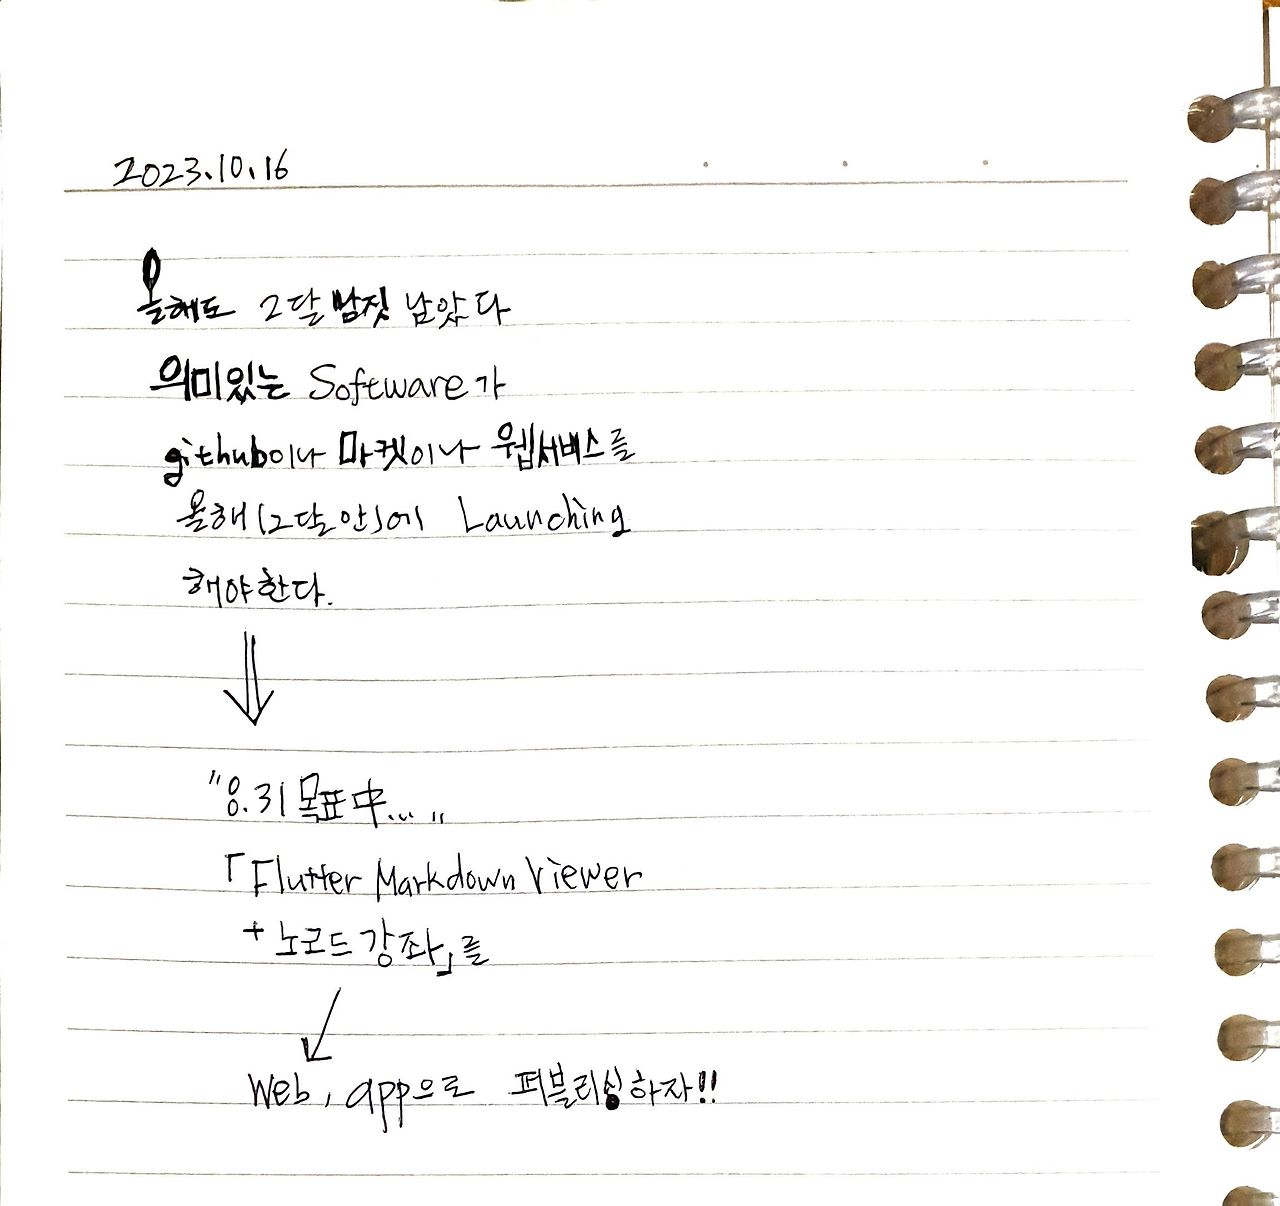 2023.10.16
올해도 2달 남짓 남았다
의미있는 Software가
github이나 마켓이나 웹서비스를
올해(2달안)에 Launching
해야한다.
"8.31 목표中... "
「Flutter Markdown Viewer
+ 노코드 강좌」를
Web, app으로 퍼블리싱하자!!